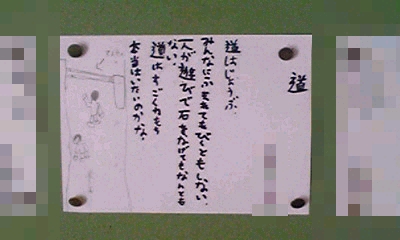 道
道はじょうぶ。
みんなにふまれてもびくともしない。
人が遊びで石をなげてもなんでも
ない。
道はすごくわもう
本当はいたいのかな。